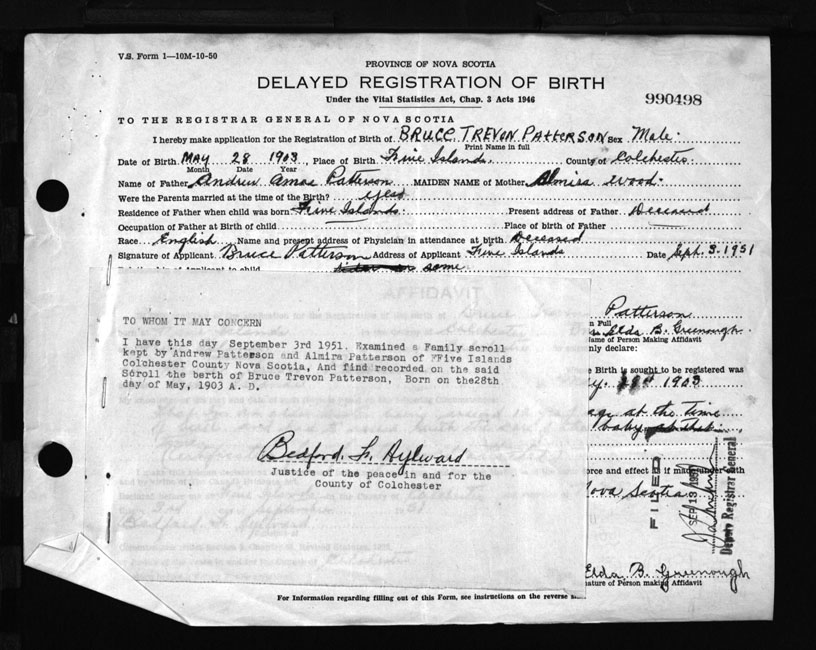 V.S. Form 1—10M-10-50
PROVINCE OF NOVA SCOTIA
DELAYED REGISTRATION OF BIRTH
Under the Vital Statistics Act, Chap. 3 Acts 1946
990498
TO THE REGISTRAR GENERAL OF NOVA SCOTIA
I hereby make application for the Registration of Birth of BRUCE TREVON PATTERSON Sex Male.
Print Name in full
Date of Birth MAY 28 1903, Place of Birth Five Islands, County of Colchester
Month Day Year
Name of Father Andrew Amos Patterson MAIDEN NAME of Mother Almira Wood.
Were the Parents married at the time of the Birth? yes
Residence of Father when child was born Five Islands. Present address of Father Deceased
Occupation of Father at Birth of child Place of birth of Father
Race English Name and present address of Physician in attendance at birth Deceased
Signature of Applicant Bruce Patterson Address of Applicant Five Islands Date Sept. 3. 1951
of Applicant to child same
AFFIDAVIT
TO WHOM IT MAY CONCERN
I have this day September 3rd 1951. Examined a Family scroll
kept by Andrew Patterson and Almira Patterson of FFive Islands
Colchester County Nova Scotia, And find recorded on the said
Scroll the berth of Bruce Trevon Patterson, Born on the28th
day of May, 1903 A. D.
Bedford. L. Aylward
Justice of the peace in and for the
County of Colchester
Patterson
Full
Elda B. Greenough.
Name of Person Making Affidavit
only declare:
Birth is sought to be registered was
1903
age at the time
baby at that
force and effect as if made under
Nova Scotia
FILED
SEP 13 1951
Deputy Registrar General
Elda B. Greenough
ature of Person making Affidavit
For Information regarding filling out of this Form, see instructions on the reverse